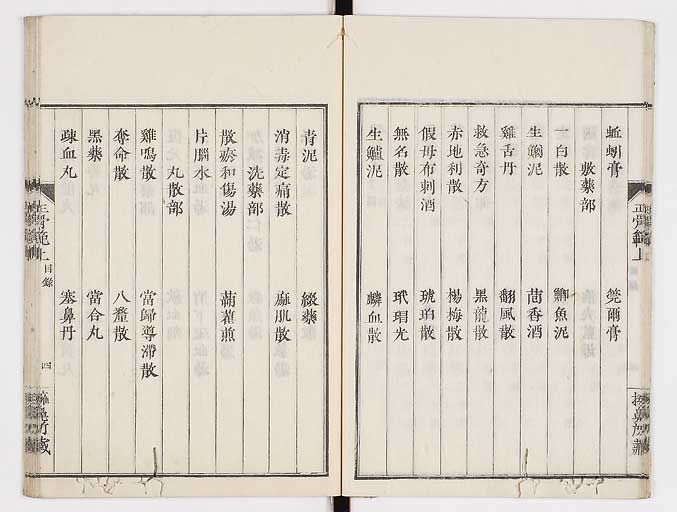 蚯蚓膏 莞爾膏
敷藥部
一白散 鯽魚泥
生鰯泥 茴香酒
雞舌丹 翻風散
救急奇方 黑龍散
赤地利散 楊梅散
假母布刺酒 琥珀散
無名散 玳瑁光
生鱸泥 麟血散
正骨範上
青泥 綴藥
消毒定痛散 麻肌散
洗藥部
散瘀和傷湯 蒴藋煎
片腦水
丸散部
雞鳴散 當歸導滯散
奪命散 八釐散
黑藥 當合丸
疎血丸 塞鼻丹
正骨範上 目錄 四